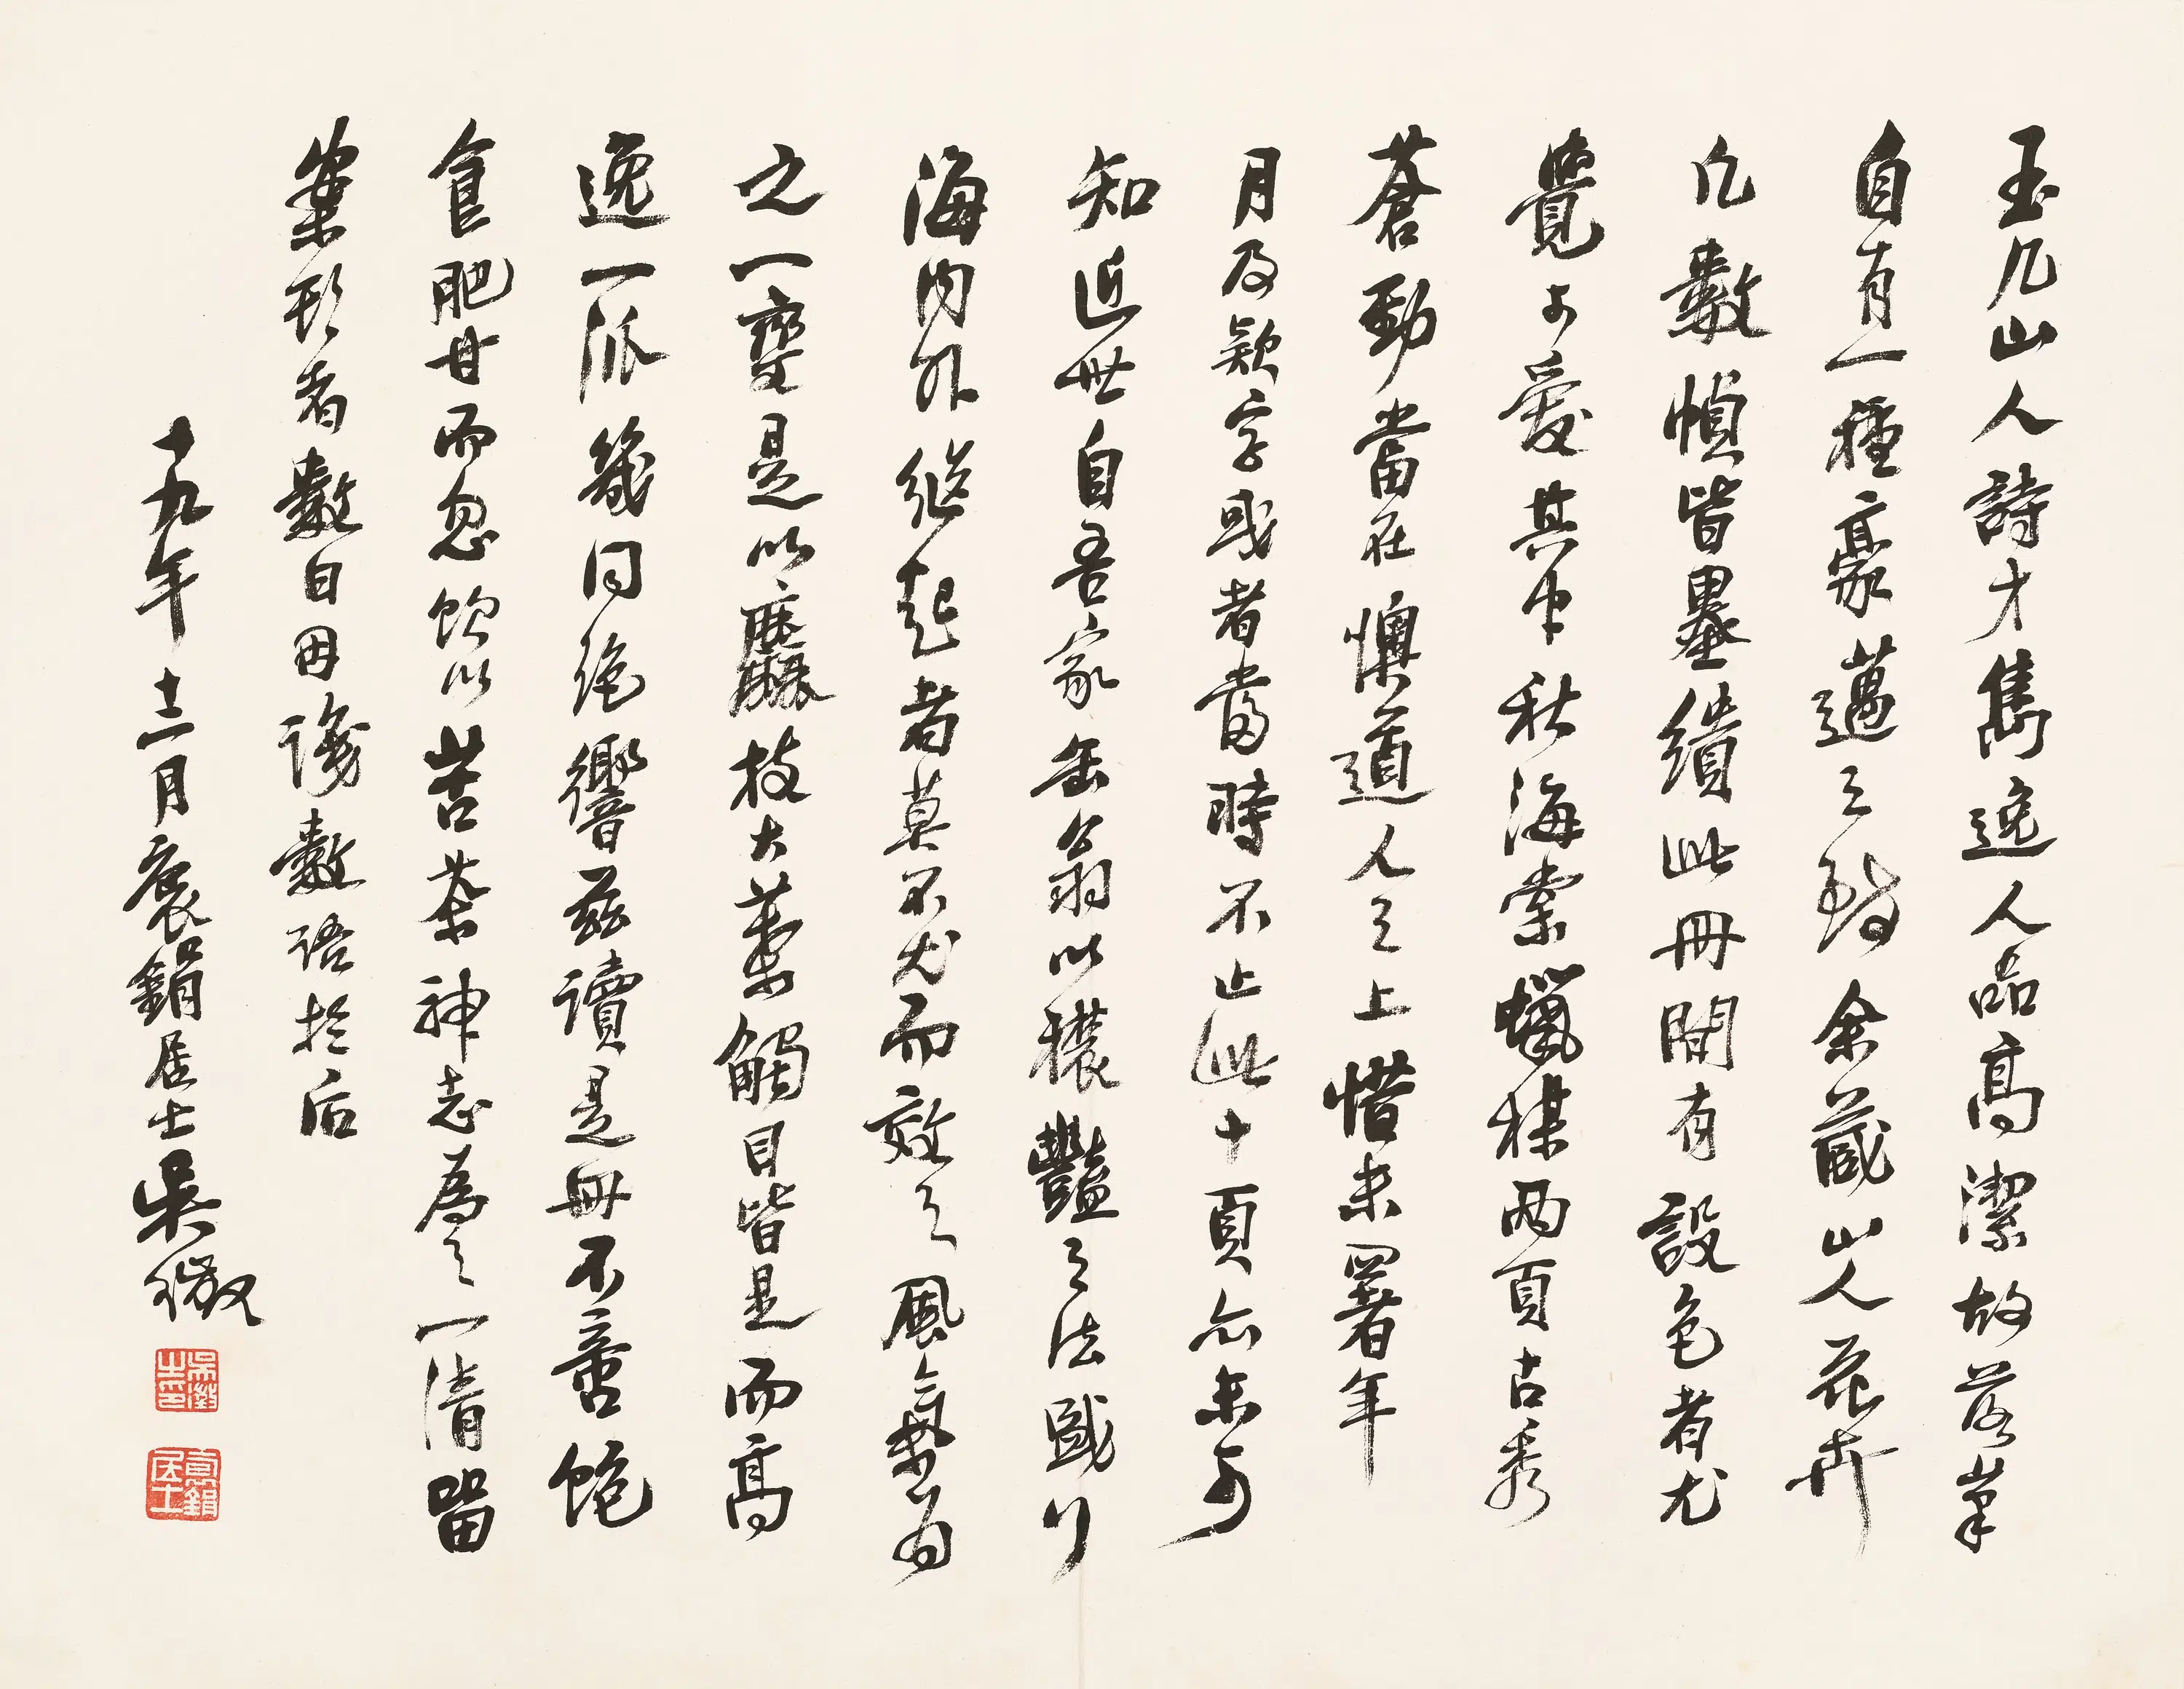 玉几山人詩才雋逸人品高潔故落筆
自有一種豪邁之致余藏山人花卉
凡數幀皆墨繢此冊間有設色者尤
覺可愛其中秋海棠蠟梅兩頁古秀
蒼勁當在懊道人之上惜未署年
月及款字或者當時不止此十頁亦未可
知近世自吾家缶翁以穠豔之法盛行
海內外繼起者莫不尤而效之風氣為
之一變是以麤枝大葉觸目皆是而高
逸一派幾同絕響茲讀是冊不啻飽
食肥甘而忽飲以苦茶神志為之一清留
案頭者數日因識數語於后
十九年十二月褱鋗居士吳徵
吳徵之印
褱鋗居士